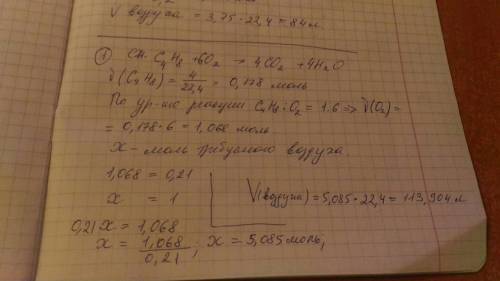 V воздуха = 3,75·22,4 = 84 л
① СН. C₄H₈ + 6O₂ → 4CO₂ + 4H₂O
ϑ(C₄H₈) = 4/22,4 = 0,178 моль
По ур-ию реакции C₄H₈ : O₂ = 1:6 => ϑ(O₂) =
= 0,178·6 = 1,068 моль
X – моль воздуха.
1,068 = 0,21
X = 1
V(воздуха) = 5,085·22,4 = 113,904 л
0,21X = 1,068
X = 1,068/0,21 ; X = 5,085 моль,